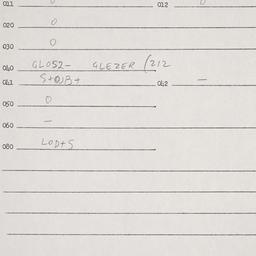 011 0 012 0
020 0
030 0
040 GL052- GLEZER (212
041 S+0)B+ 042 —
050 0
060 —
080 LOD+S